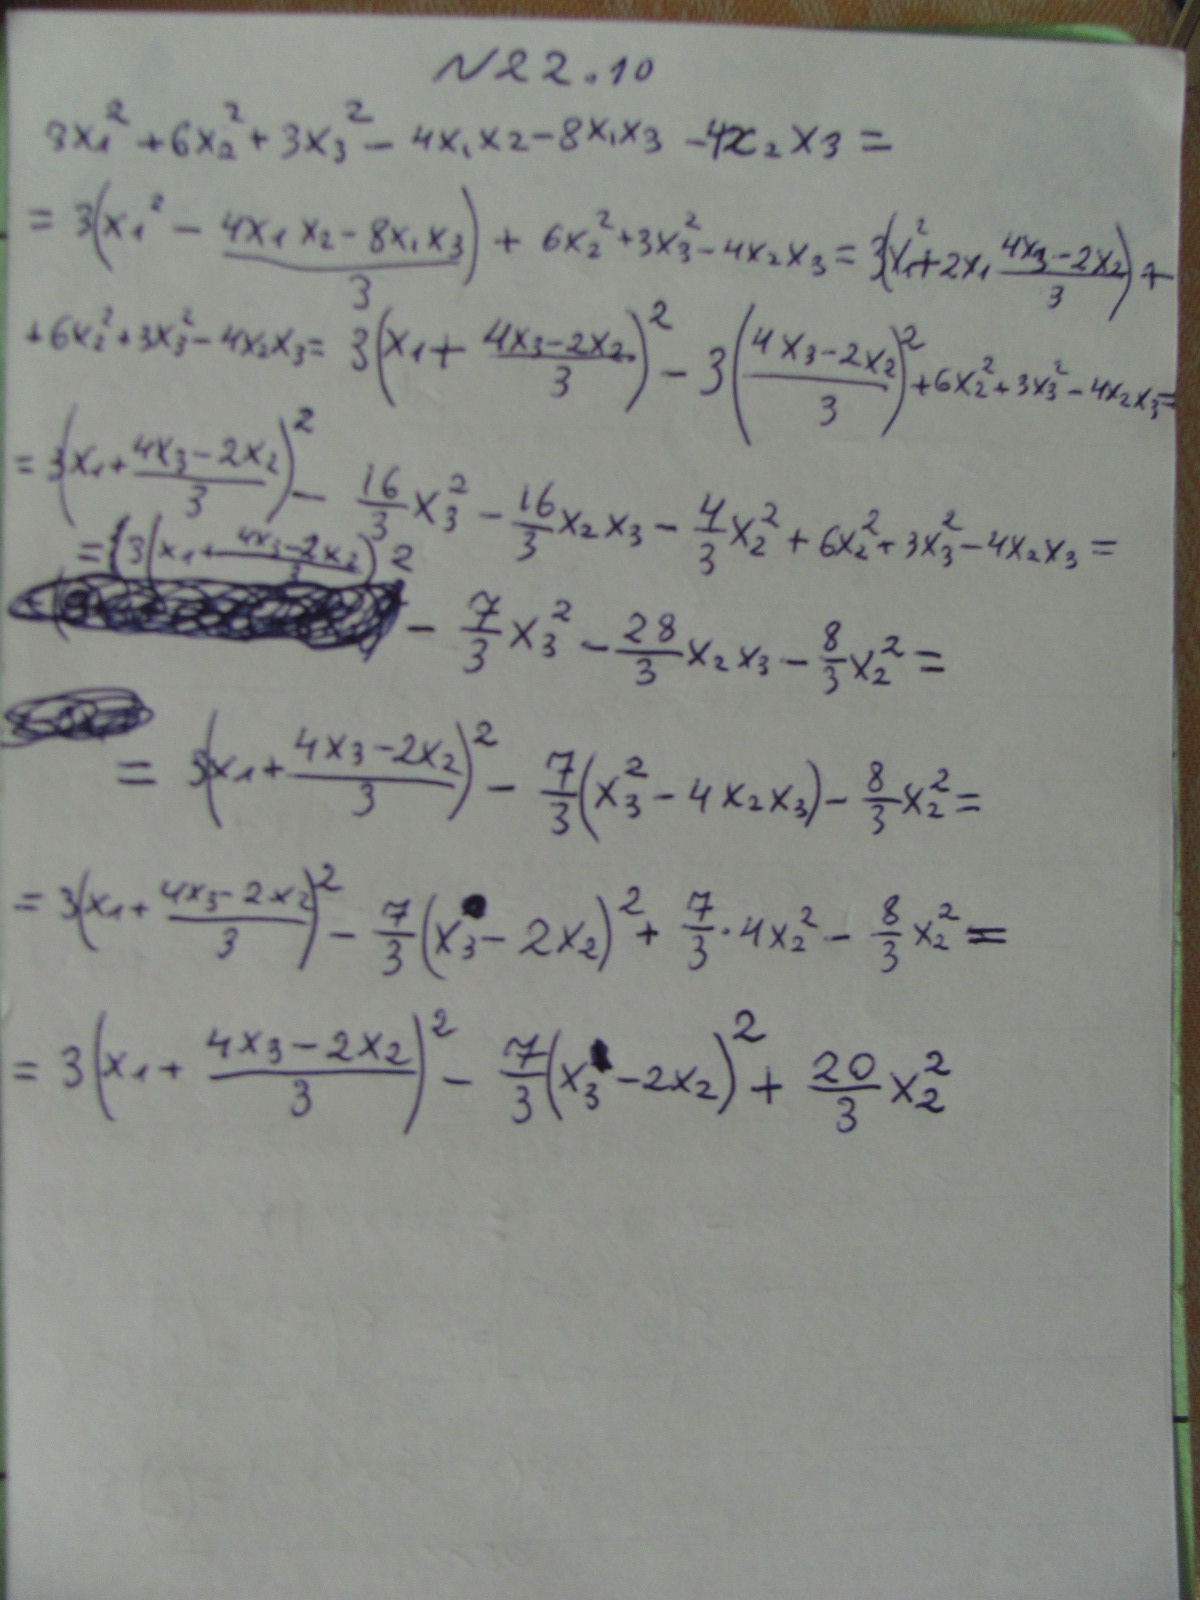 N22.10
3x₁² + 6x₂² + 3x₃² - 4x₁x₂ - 8x₁x₃ - 4x₂x₃ =
= 3(x₁² - (4x₁x₂ - 8x₁x₃)/3) + 6x₂² + 3x₃² - 4x₂x₃ = 3(x₁² + 2x₁ (4x₃ - 2x₂)/3) +
+ 6x₂² + 3x₃² - 4x₂x₃ = 3(x₁ + (4x₃ - 2x₂)/3)² - 3((4x₃ - 2x₂)/3)² + 6x₂² + 3x₃² - 4x₂x₃ =
= 3(x₁ + (4x₃ - 2x₂)/3)² - 16/3 x₃² - 16/3 x₂x₃ - 4/3 x₂² + 6x₂² + 3x₃² - 4x₂x₃ =
= 3(x₁ + (4x₃ - 2x₂)/3)² - 7/3 x₃² - 28/3 x₂x₃ - 8/3 x₂² =
= 3(x₁ + (4x₃ - 2x₂)/3)² - 7/3 (x₃² - 4x₂x₃) - 8/3 x₂² =
= 3(x₁ + (4x₃ - 2x₂)/3)² - 7/3 (x₃ - 2x₂)² + 7/3 · 4x₂² - 8/3 x₂² =
= 3(x₁ + (4x₃ - 2x₂)/3)² - 7/3 (x₃ - 2x₂)² + 20/3 x₂²